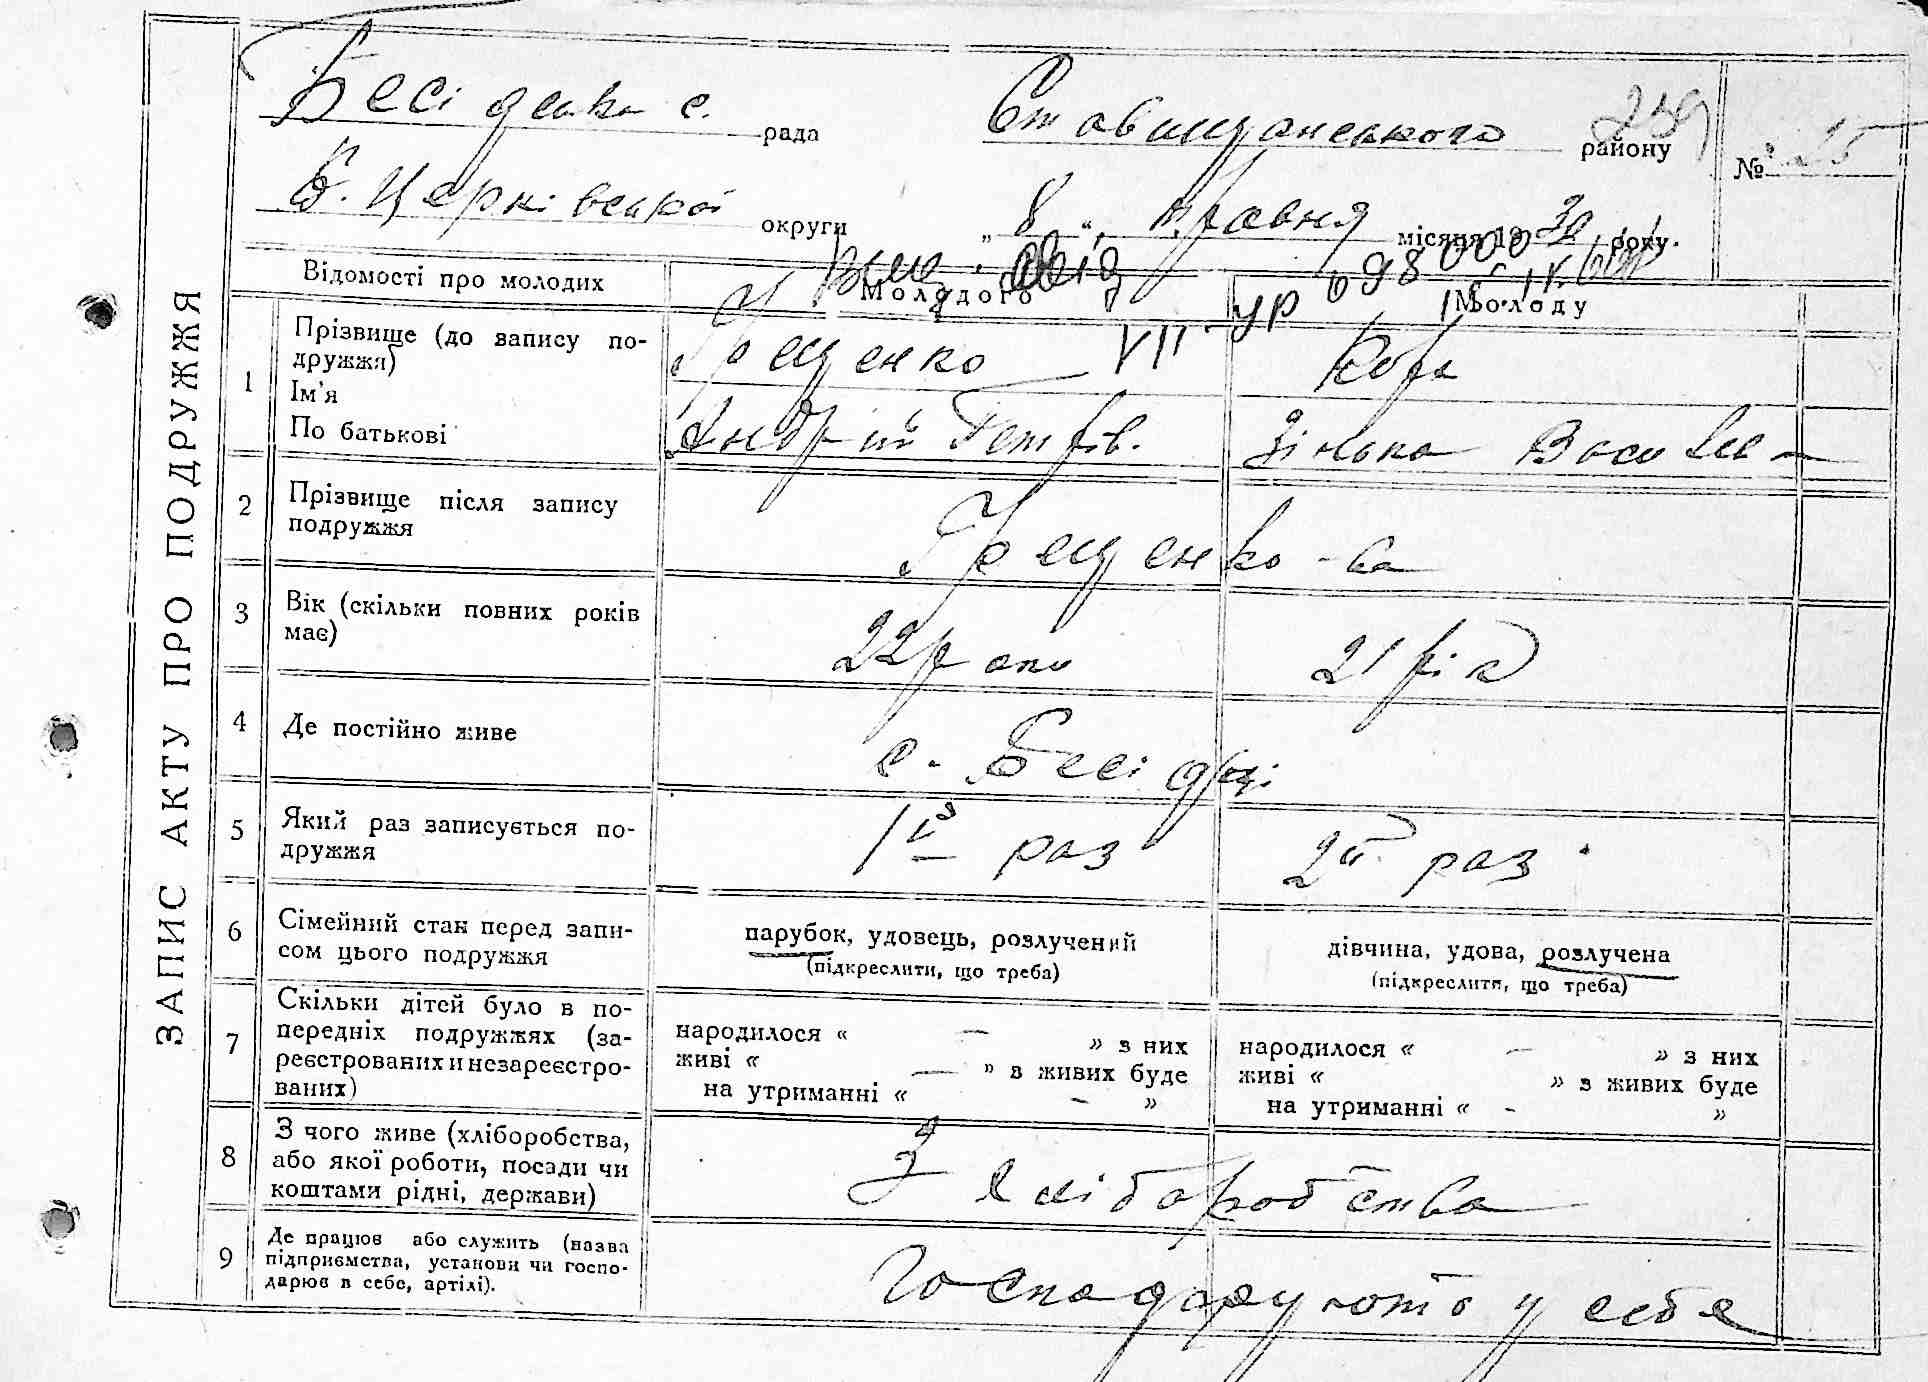 259
Бесідська с. рада Ставищанського району № 25
Б. Церківської округи „ 8 “ травня місяця 1930 року.
ЗАПИС АКТУ ПРО ПОДРУЖЖЯ
Відомості про молодих Молодого Молоду
VII-УР 698000
1 Прізвище (до запису по-
дружжя) Грещенко
Ім'я
По батькові Андрій Петрів. Зінька Василев
2 Прізвище після запису
подружжя Грещенко-ва
3 Вік (скільки повних років
має) 22 роки 21 рік
4 Де постійно живе с. Бесідці
5 Який раз записується по-
дружжя 1й раз 2й раз
6 Сімейний стан перед запи-
сом цього подружжя
парубок, удовець, розлучений
(підкреслити, що треба)
дівчина, удова, розлучена
(підкреслити, що треба)
7 Скільки дітей було в по-
передніх подружжях (за-
реєстрованих и незареєстро-
ваних)
народилося « — » з них
живі « — » в живих буде
на утриманні « - »
народилося « — » з них
живі « » з живих буде
на утриманні « - »
8 З чого живе (хліборобства,
або якої роботи, посади чи
коштами рідні, держави)
З хліборобства
9 Де працює або служить (назва
підприємства, установи чи госпо-
дарює в себе, артілі).
Господарують у себе